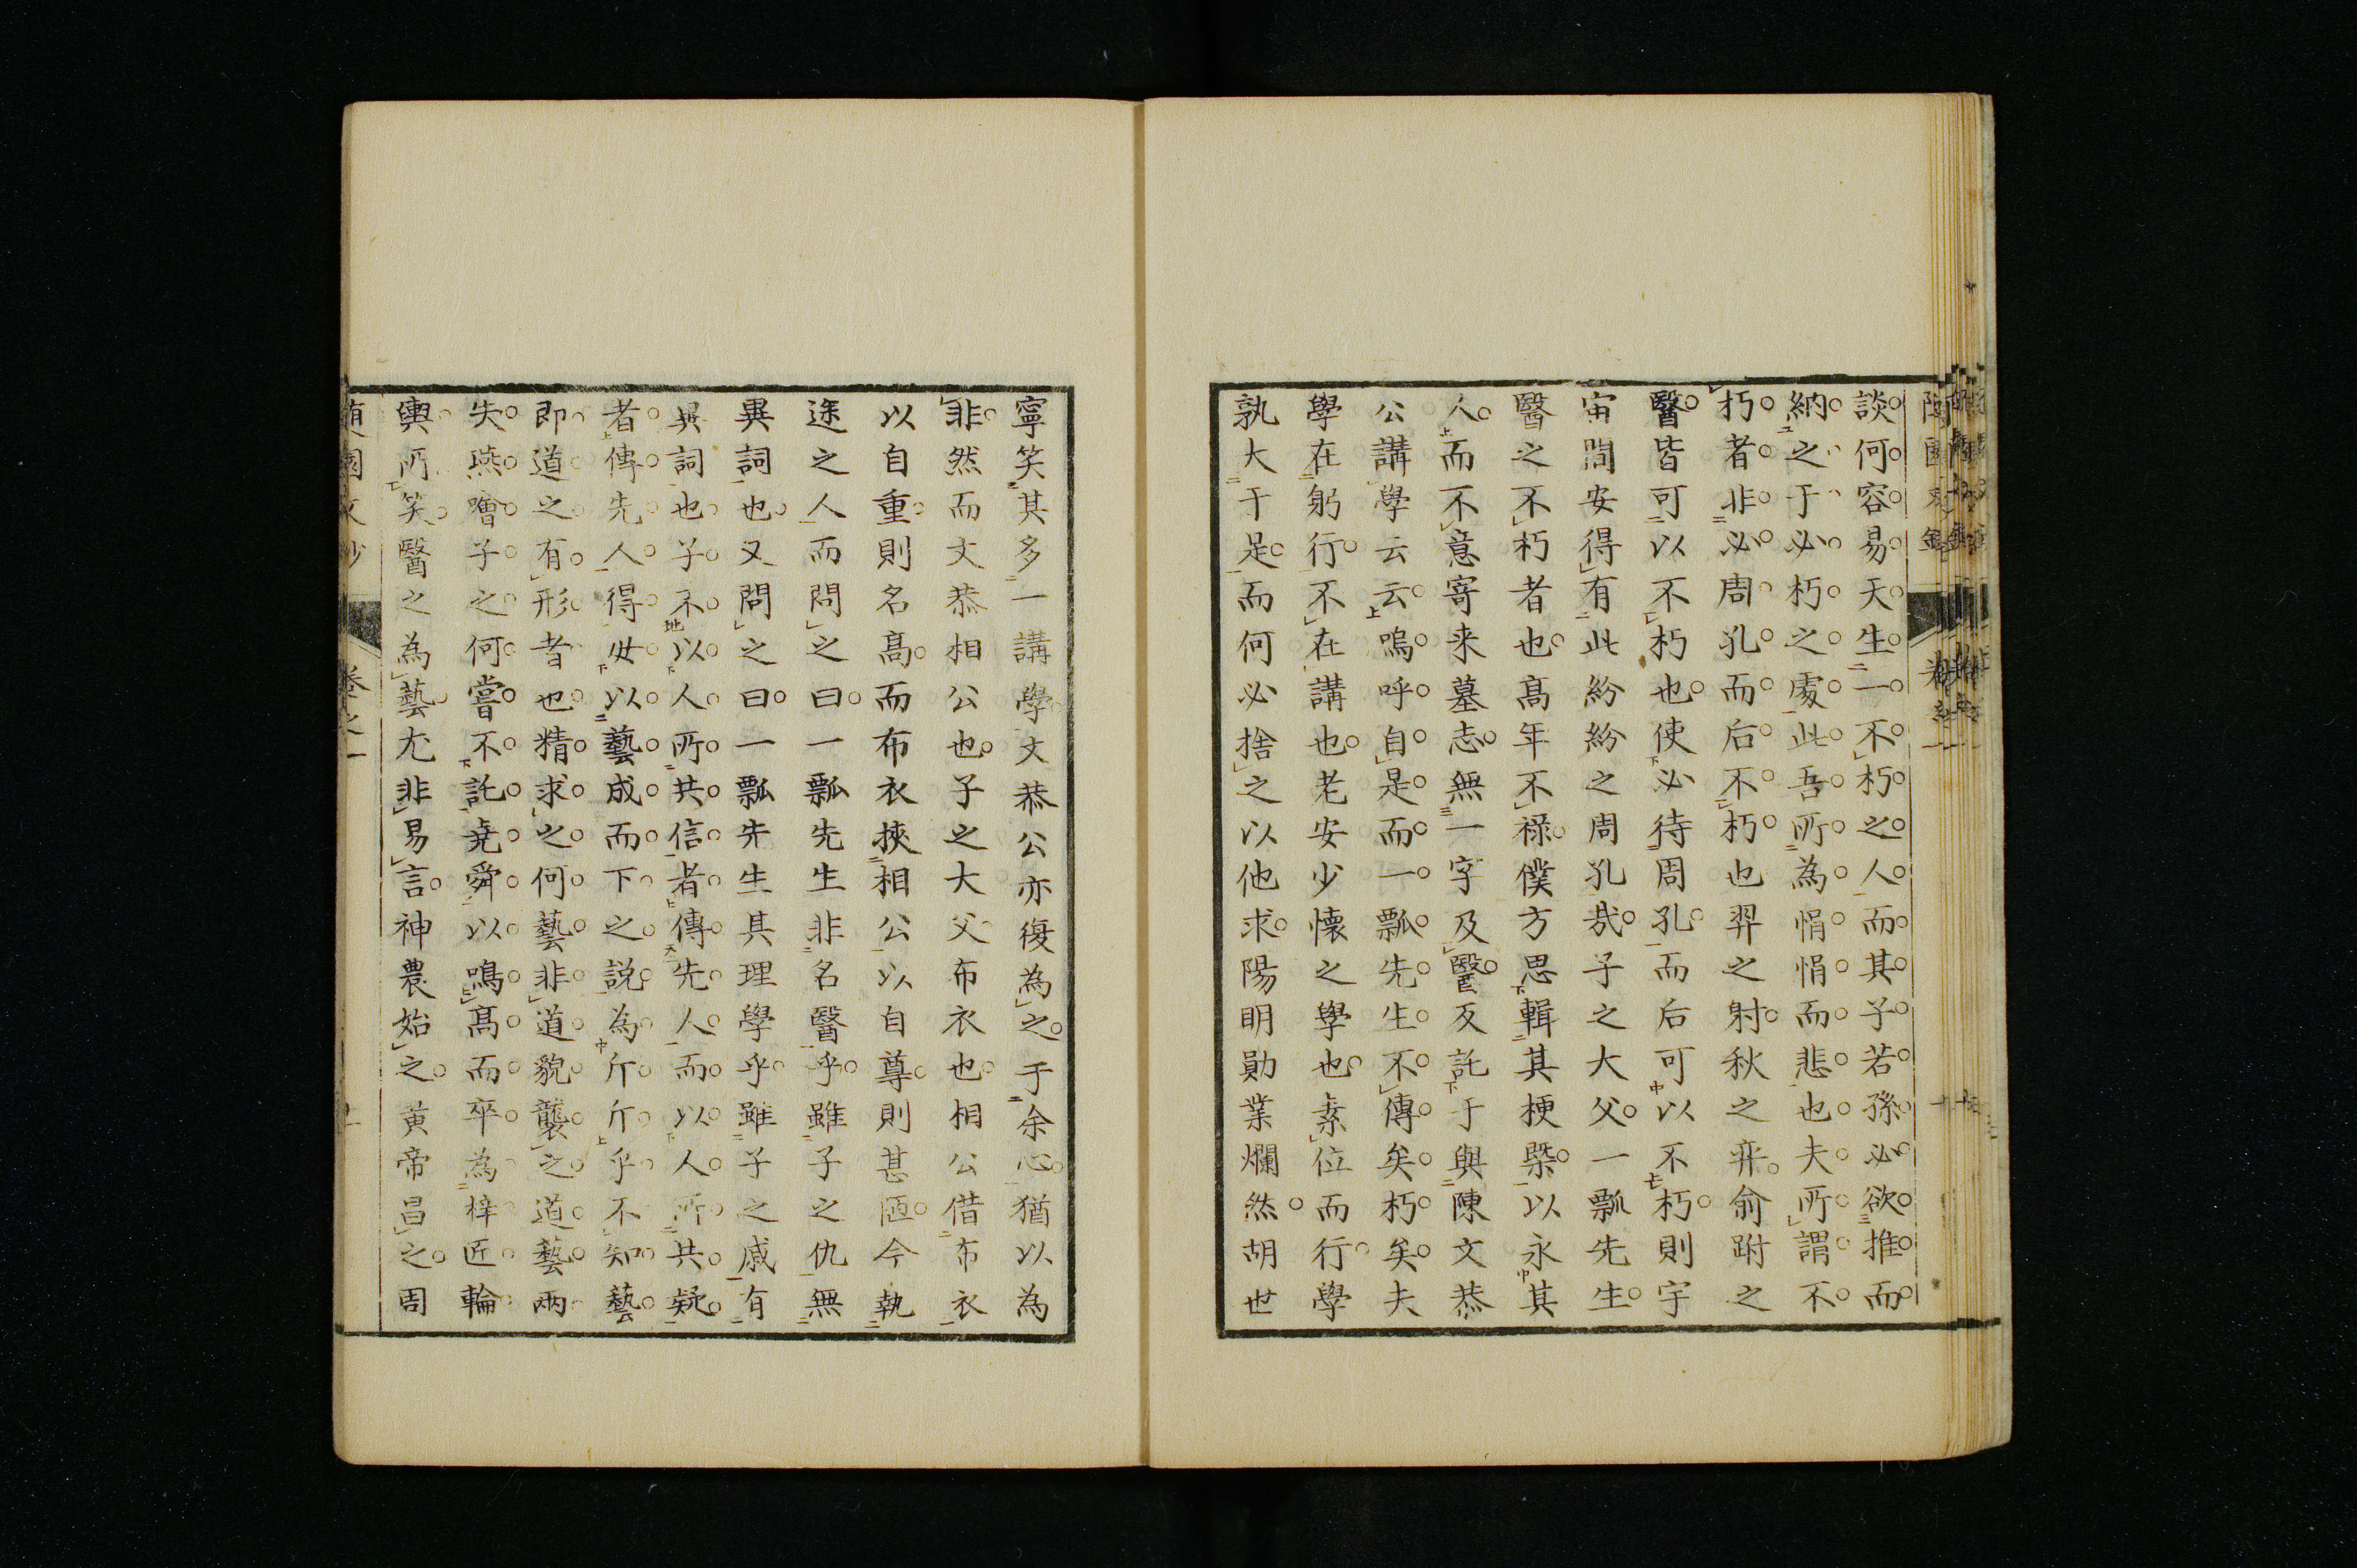 談何容易天生一不朽之人而其子若孫必欲推而
納之于必朽之處此吾所為悁悁而悲也夫所謂不
朽者非必周孔而后不朽也羿之射秋之弈俞跗之
醫皆可以不朽也使必待周孔而后可以不朽則宇
宙間安得有此紛紛之周孔哉子之大父一瓢先生
醫之不朽者也高年不祿僕方思輯其梗槩以永其
人而不意寄来墓志無一字及醫反託于與陳文恭
公講學云云嗚呼自是而一瓢先生不傳矣朽矣夫
學在躬行不在講也老安少懷之學也素位而行學
孰大于是而何必捨之以他求陽明勛業爛然胡世
寧笑其多一講學文恭公亦復為之于余心猶以為
非然而文恭相公也子之大父布衣也相公借布衣
以自重則名髙而布衣挾相公以自尊則甚陋今執
途之人而問之曰一瓢先生非名醫乎雖子之仇無
異詞也又問之曰一瓢先生其理學乎雖子之戚有
異詞也子不以人所共信者傳先人而以人所共疑
者傳先人得毋以藝成而下之說為斤斤乎不知藝
即道之有形者也精求之何藝非道貌襲之道藝兩
失燕噲子之何嘗不託堯舜以鳴髙而卒為梓匠輪
輿所笑醫之為藝尤非易言神農始之黄帝昌之周
卷之一